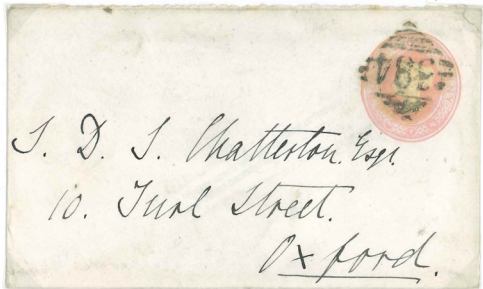 S. D. S. Chatterton. Esqr.
10. Turl Street.
Oxford.